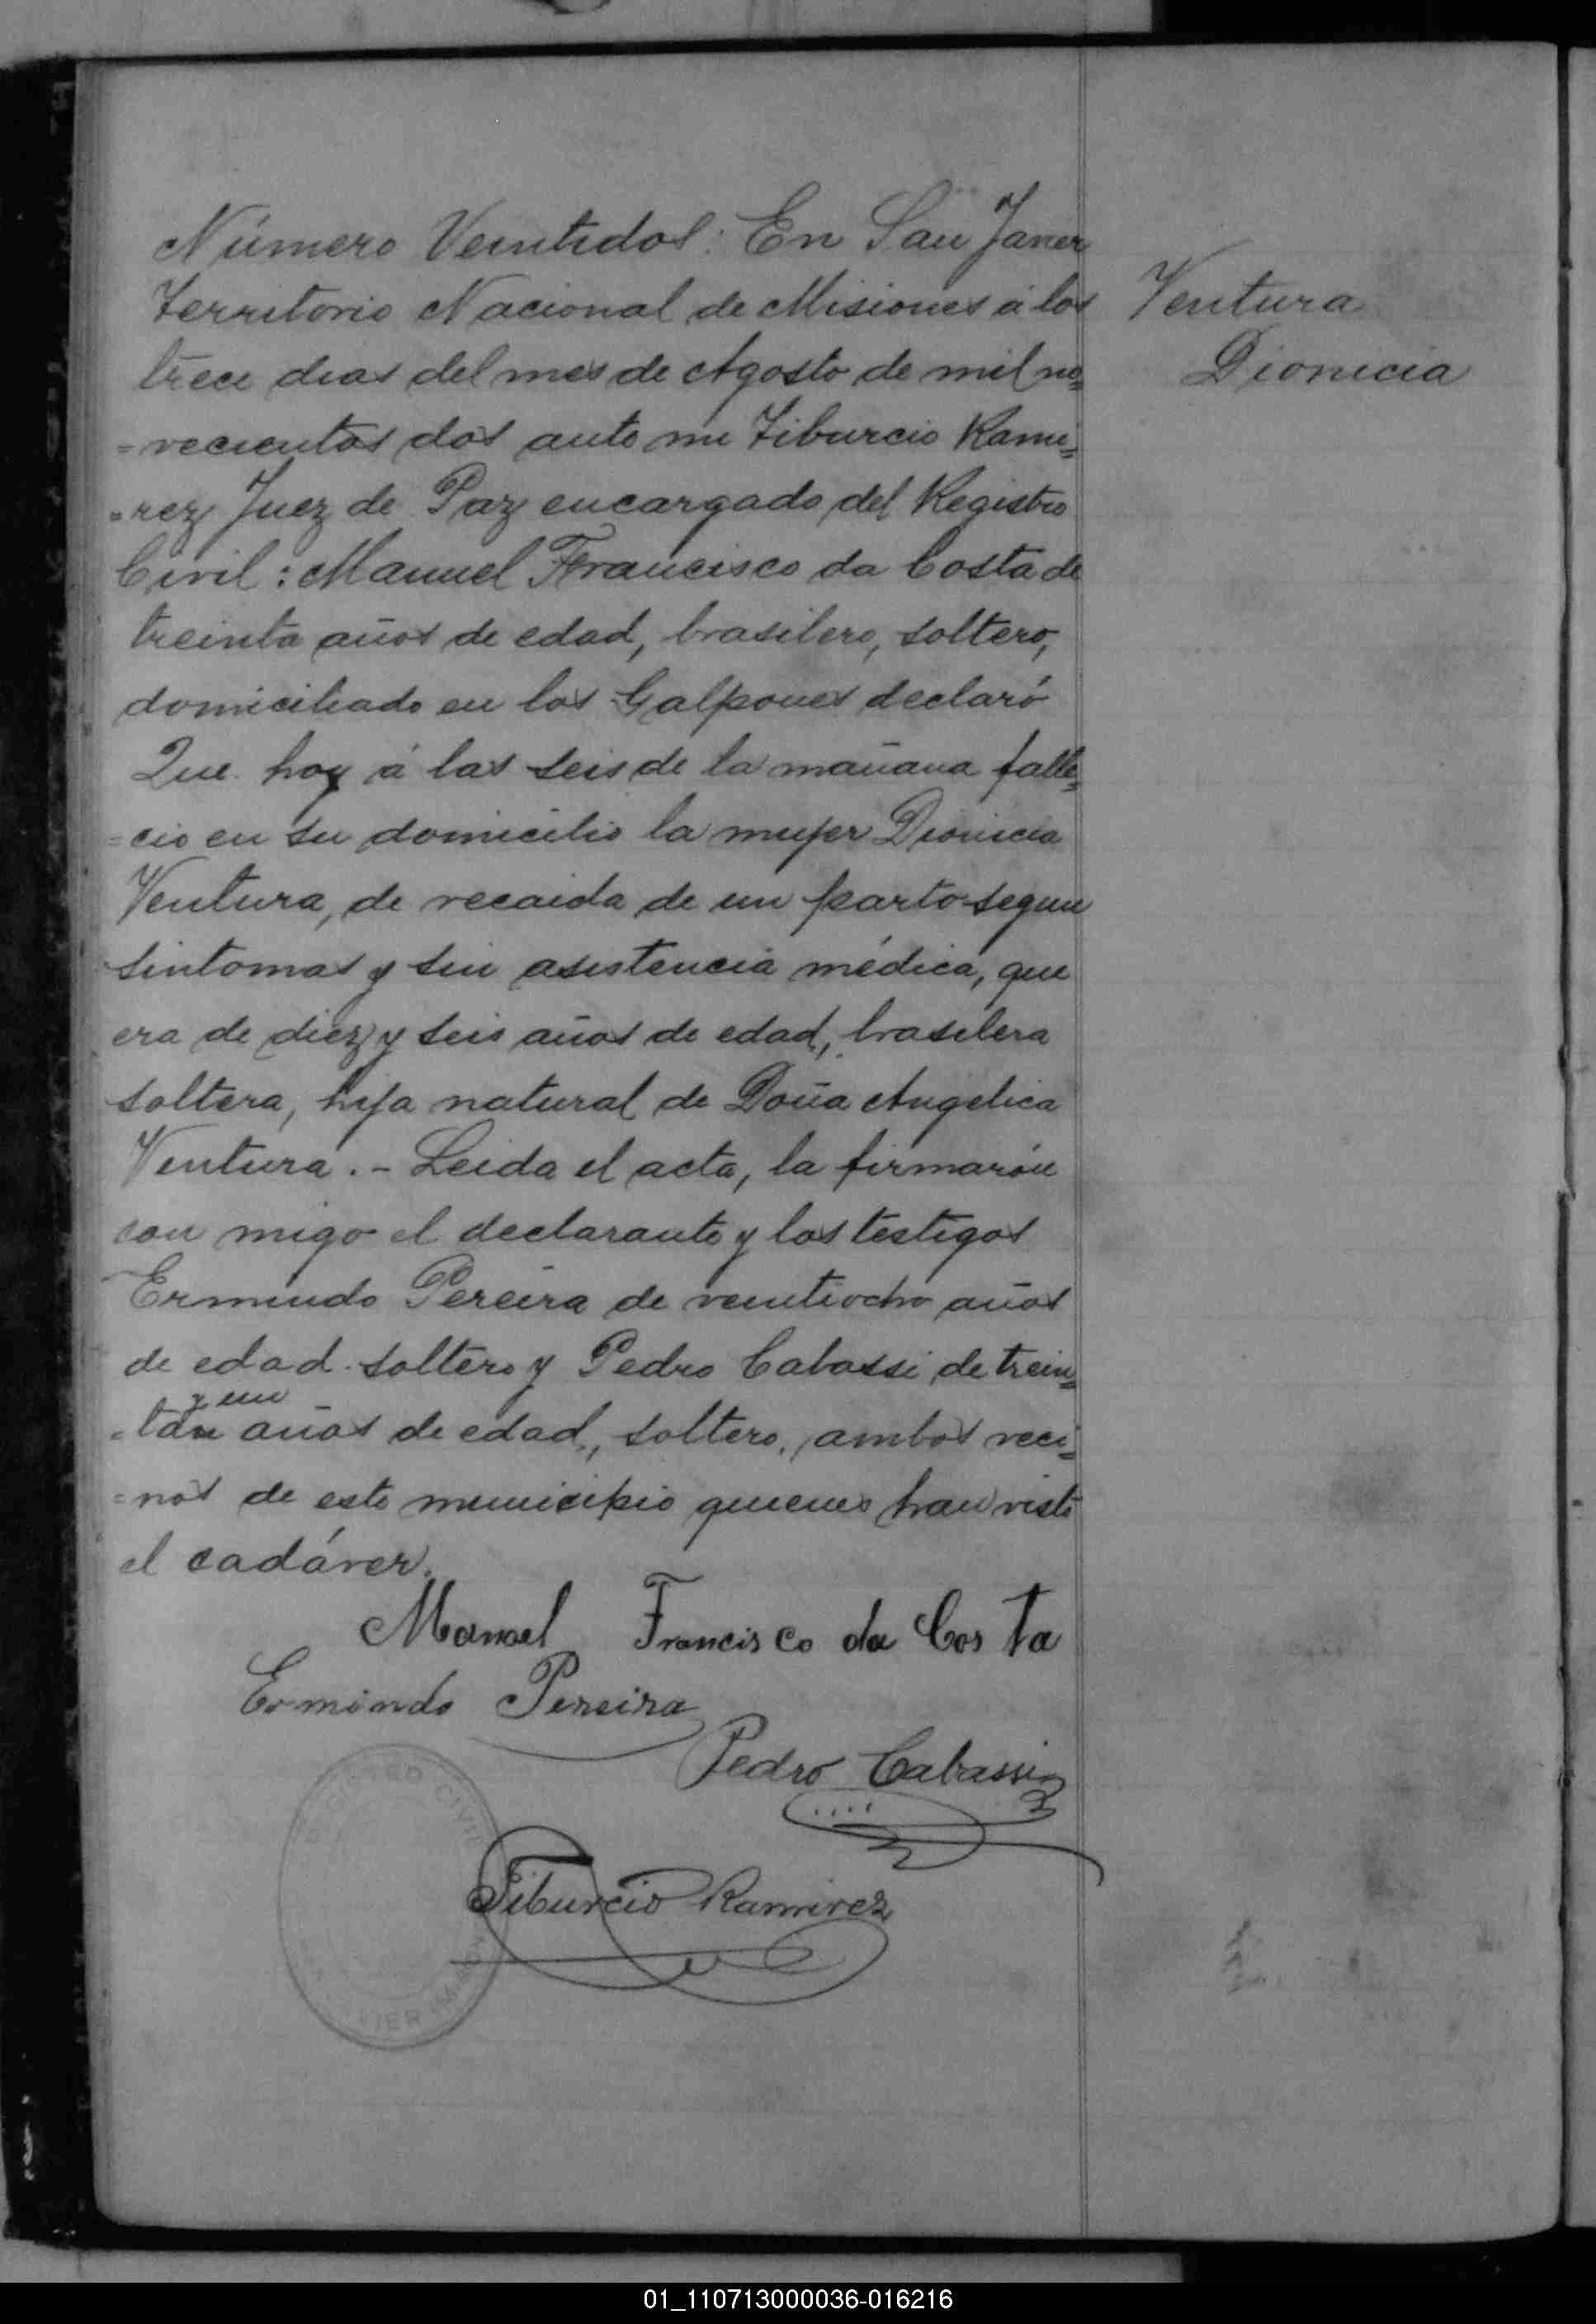 Número Veintidos: En San Javier
Territorio Nacional de Misiones á los
trece dias del mes de Agosto de mil no=
=vecientos dos ante mi Tiburcio Rami=
=rez Juez de Paz encargado del Registro
Civil: Manuel Francisco da Costa de
treinta años de edad, brasilero, soltero,
domiciliado en los Galpones declaró
Que hoy á las seis de la mañana falle=
=cio en su domicilio la mujer Dionicia
Ventura, de recaida de un parto segun
sintomas y sin asistencia médica, que
era de diez y seis años de edad, brasilera
soltera, hija natural de Doña Angelica
Ventura. - Leida el acta, la firmarón
con migo el declarante y los testigos
Ermindo Pereira de veintiocho años
de edad soltero y Pedro Cabassi de trein=
y un
=ta años de edad, soltero, ambos veci=
=nos de este municipio quienes han visto
el cadáver.
Ventura
Dionicia
Manoel Francisco da Costa
Ermindo Pereira
Pedro Cabassi
Tiburcio Ramirez
CIVIL
VIER
01_110713000036-016216